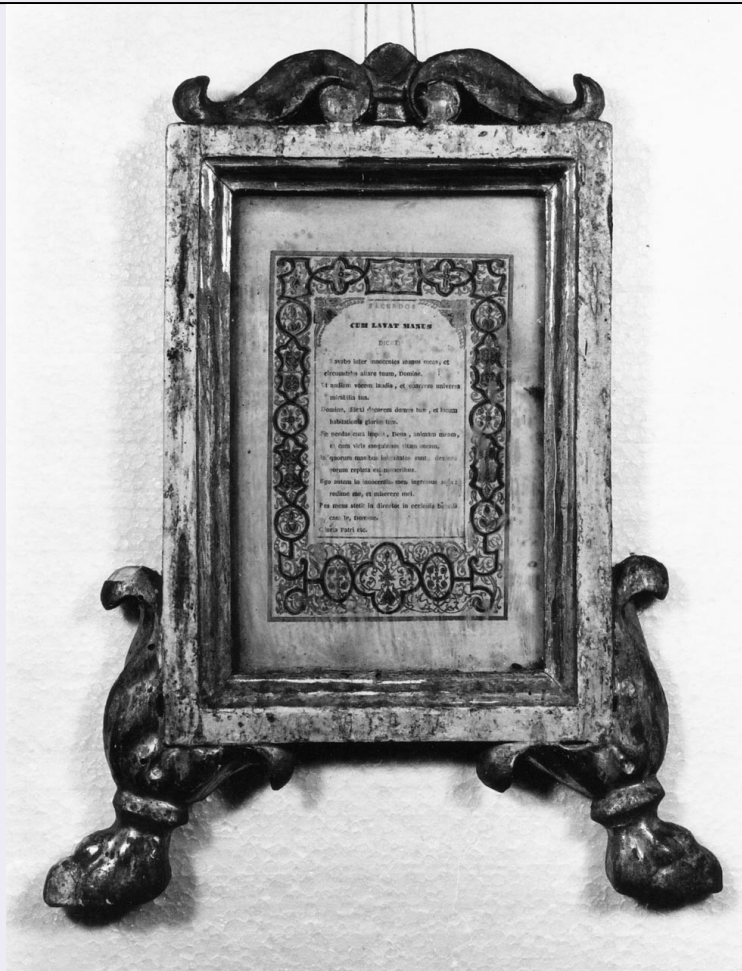 SACERDOS
CUM LAVAT MANUS
DICAT:
Lavabo inter innocentes manus meas, et
circumdabo altare tuum, Domine.
Ut audiam vocem laudis, et enarrem universa
mirabilia tua.
Domine, dilexi decorem domus tuæ, et locum
habitationis gloriæ tuæ.
Ne perdas cum impiis, Deus, animam meam,
et cum viris sanguinum vitam meam.
In quorum manibus iniquitates sunt, dextera
eorum repleta est muneribus.
Ego autem in innocentia mea ingressus sum,
redime me, et miserere mei.
Pes meus stetit in directo: in ecclesiis benedi
cam te, Domine.
Gloria Patri etc.